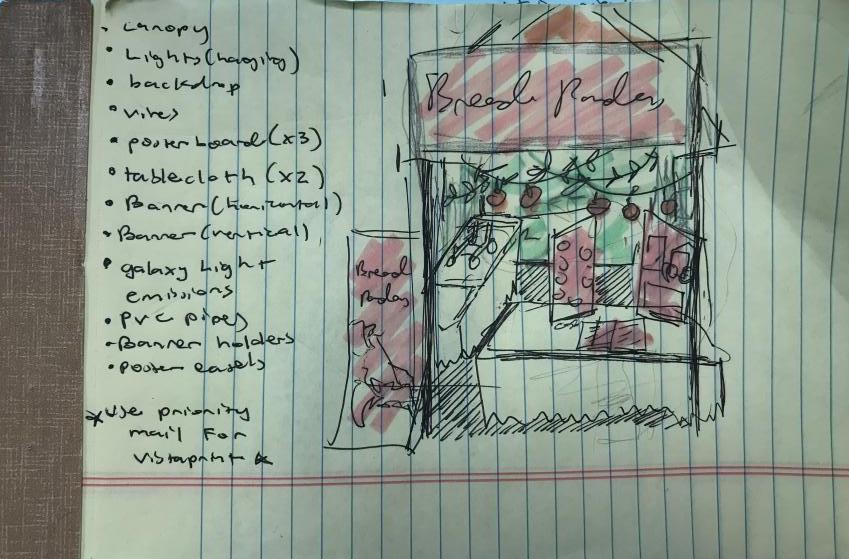 • canopy
• Lights (hanging)
• backdrop
• vines
• poster board (x3)
• tablecloth (x2)
• Banner (horizontal)
• Banner (vertical)
• galaxy Light
emissions
• PVC pipes
• Banner holders
• poster easels
* Use priority
mail for
Vistaprint *
Bread
Bread